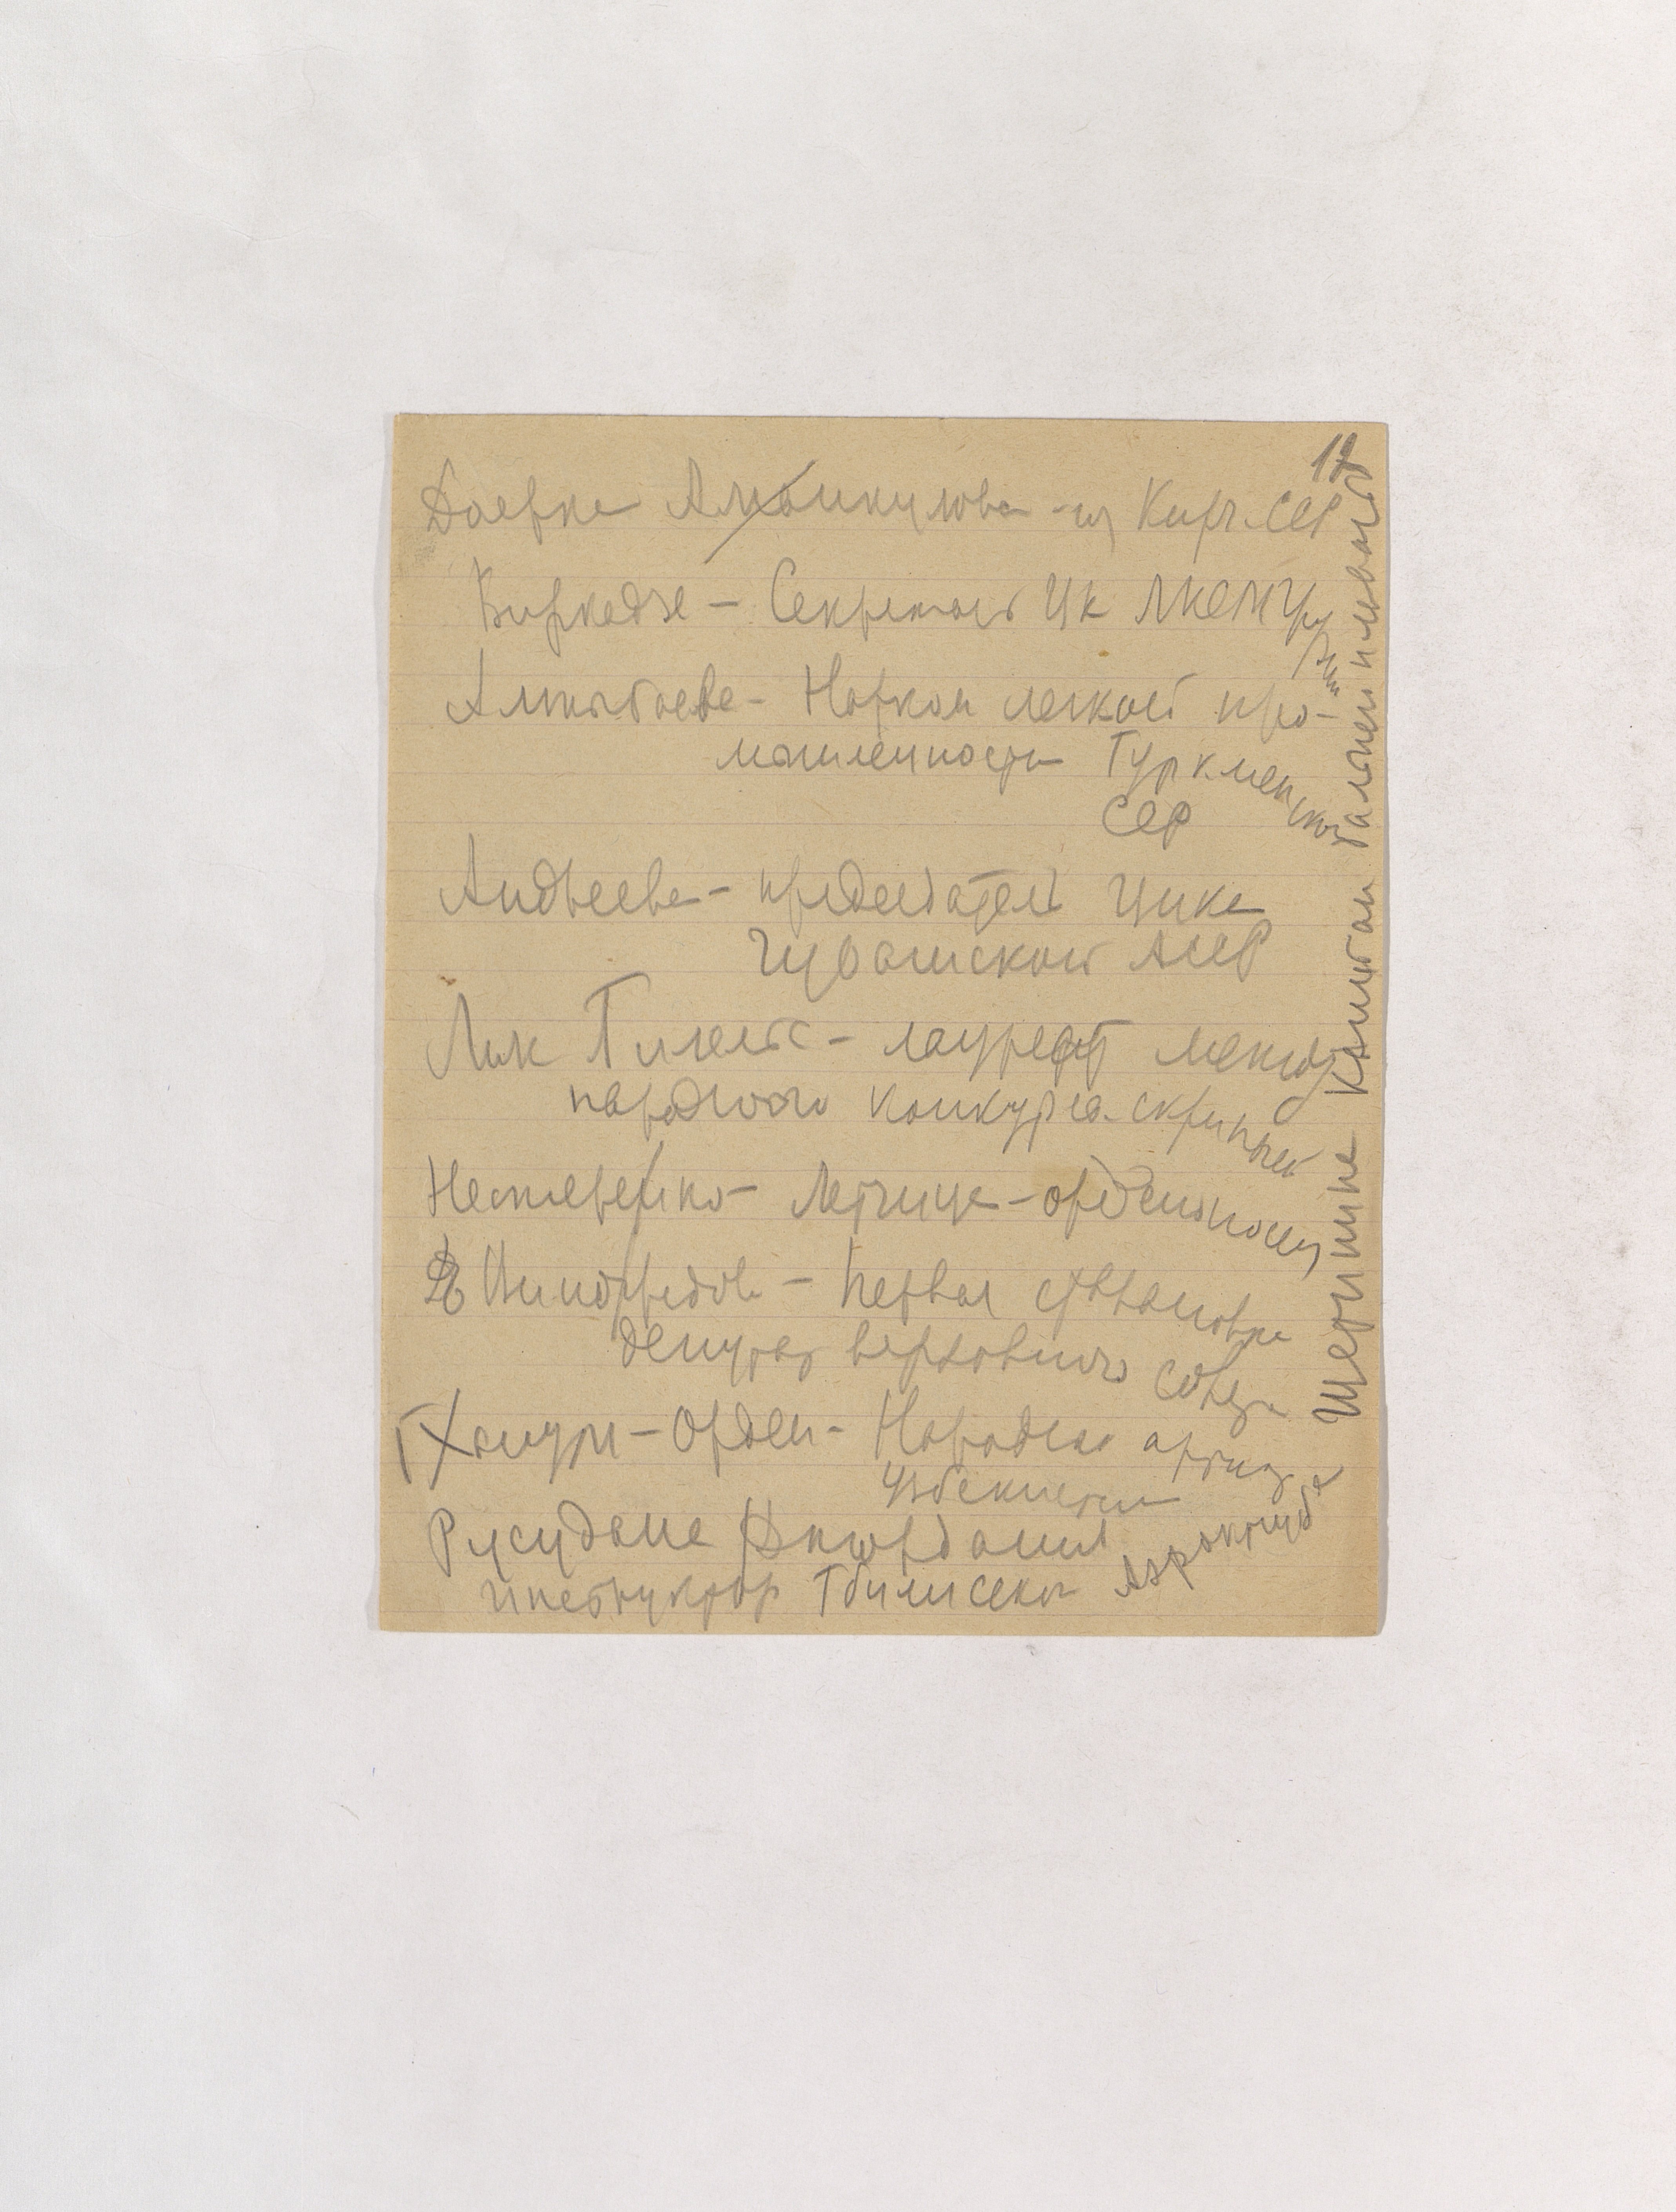 12
Доярка Алыбикулова - из Кирг. ССР
Виркадзе - Секретарь ЦК ЛКСМ Грузии
Алтыбаева - Нарком легкой про-
мышленности Туркменской
ССР
Андреева - председатель Цика
Чувашской АССР
Лиза Гилельс - лауреат между
народного конкурса скрипачей
Нестеренко - Летчица - орденоносец
Виноградова - Первая стахановка
депутат верховного совета
Тхануми - Орден - Народная артист
Узбекистан
Русудана Жиордания
инструктор Тбилисского Аэроклуба
Щетинина Капитан дальнего плавания